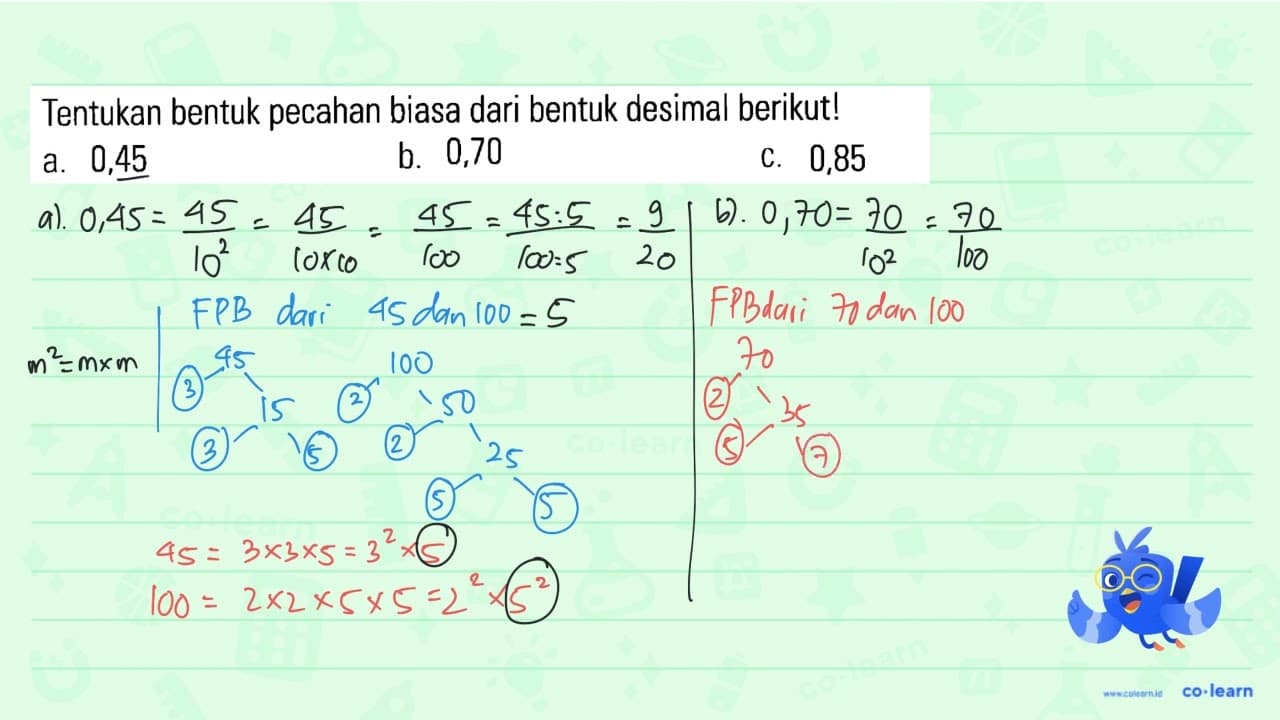 Tentukan bentuk pecahan biasa dari bentuk desimal berikut!
a. 0,45 b. 0,70 c. 0,85
a). 0,45 = 45/10² = 45/10×10 = 45/100 = 45:5/100:5 = 9/20
FPB dari 45 dan 100 = 5
m² = m×m
45
3
15
3
5
100
2
50
2
25
5
5
45 = 3×3×5 = 3²×5
100 = 2×2×5×5 = 2²×5²
b). 0,70 = 70/10² = 70/100
FPB dari 70 dan 100
70
2
35
5
7
www.colearn.id co·learn
co·learn
co·learn
co·learn
co·learn